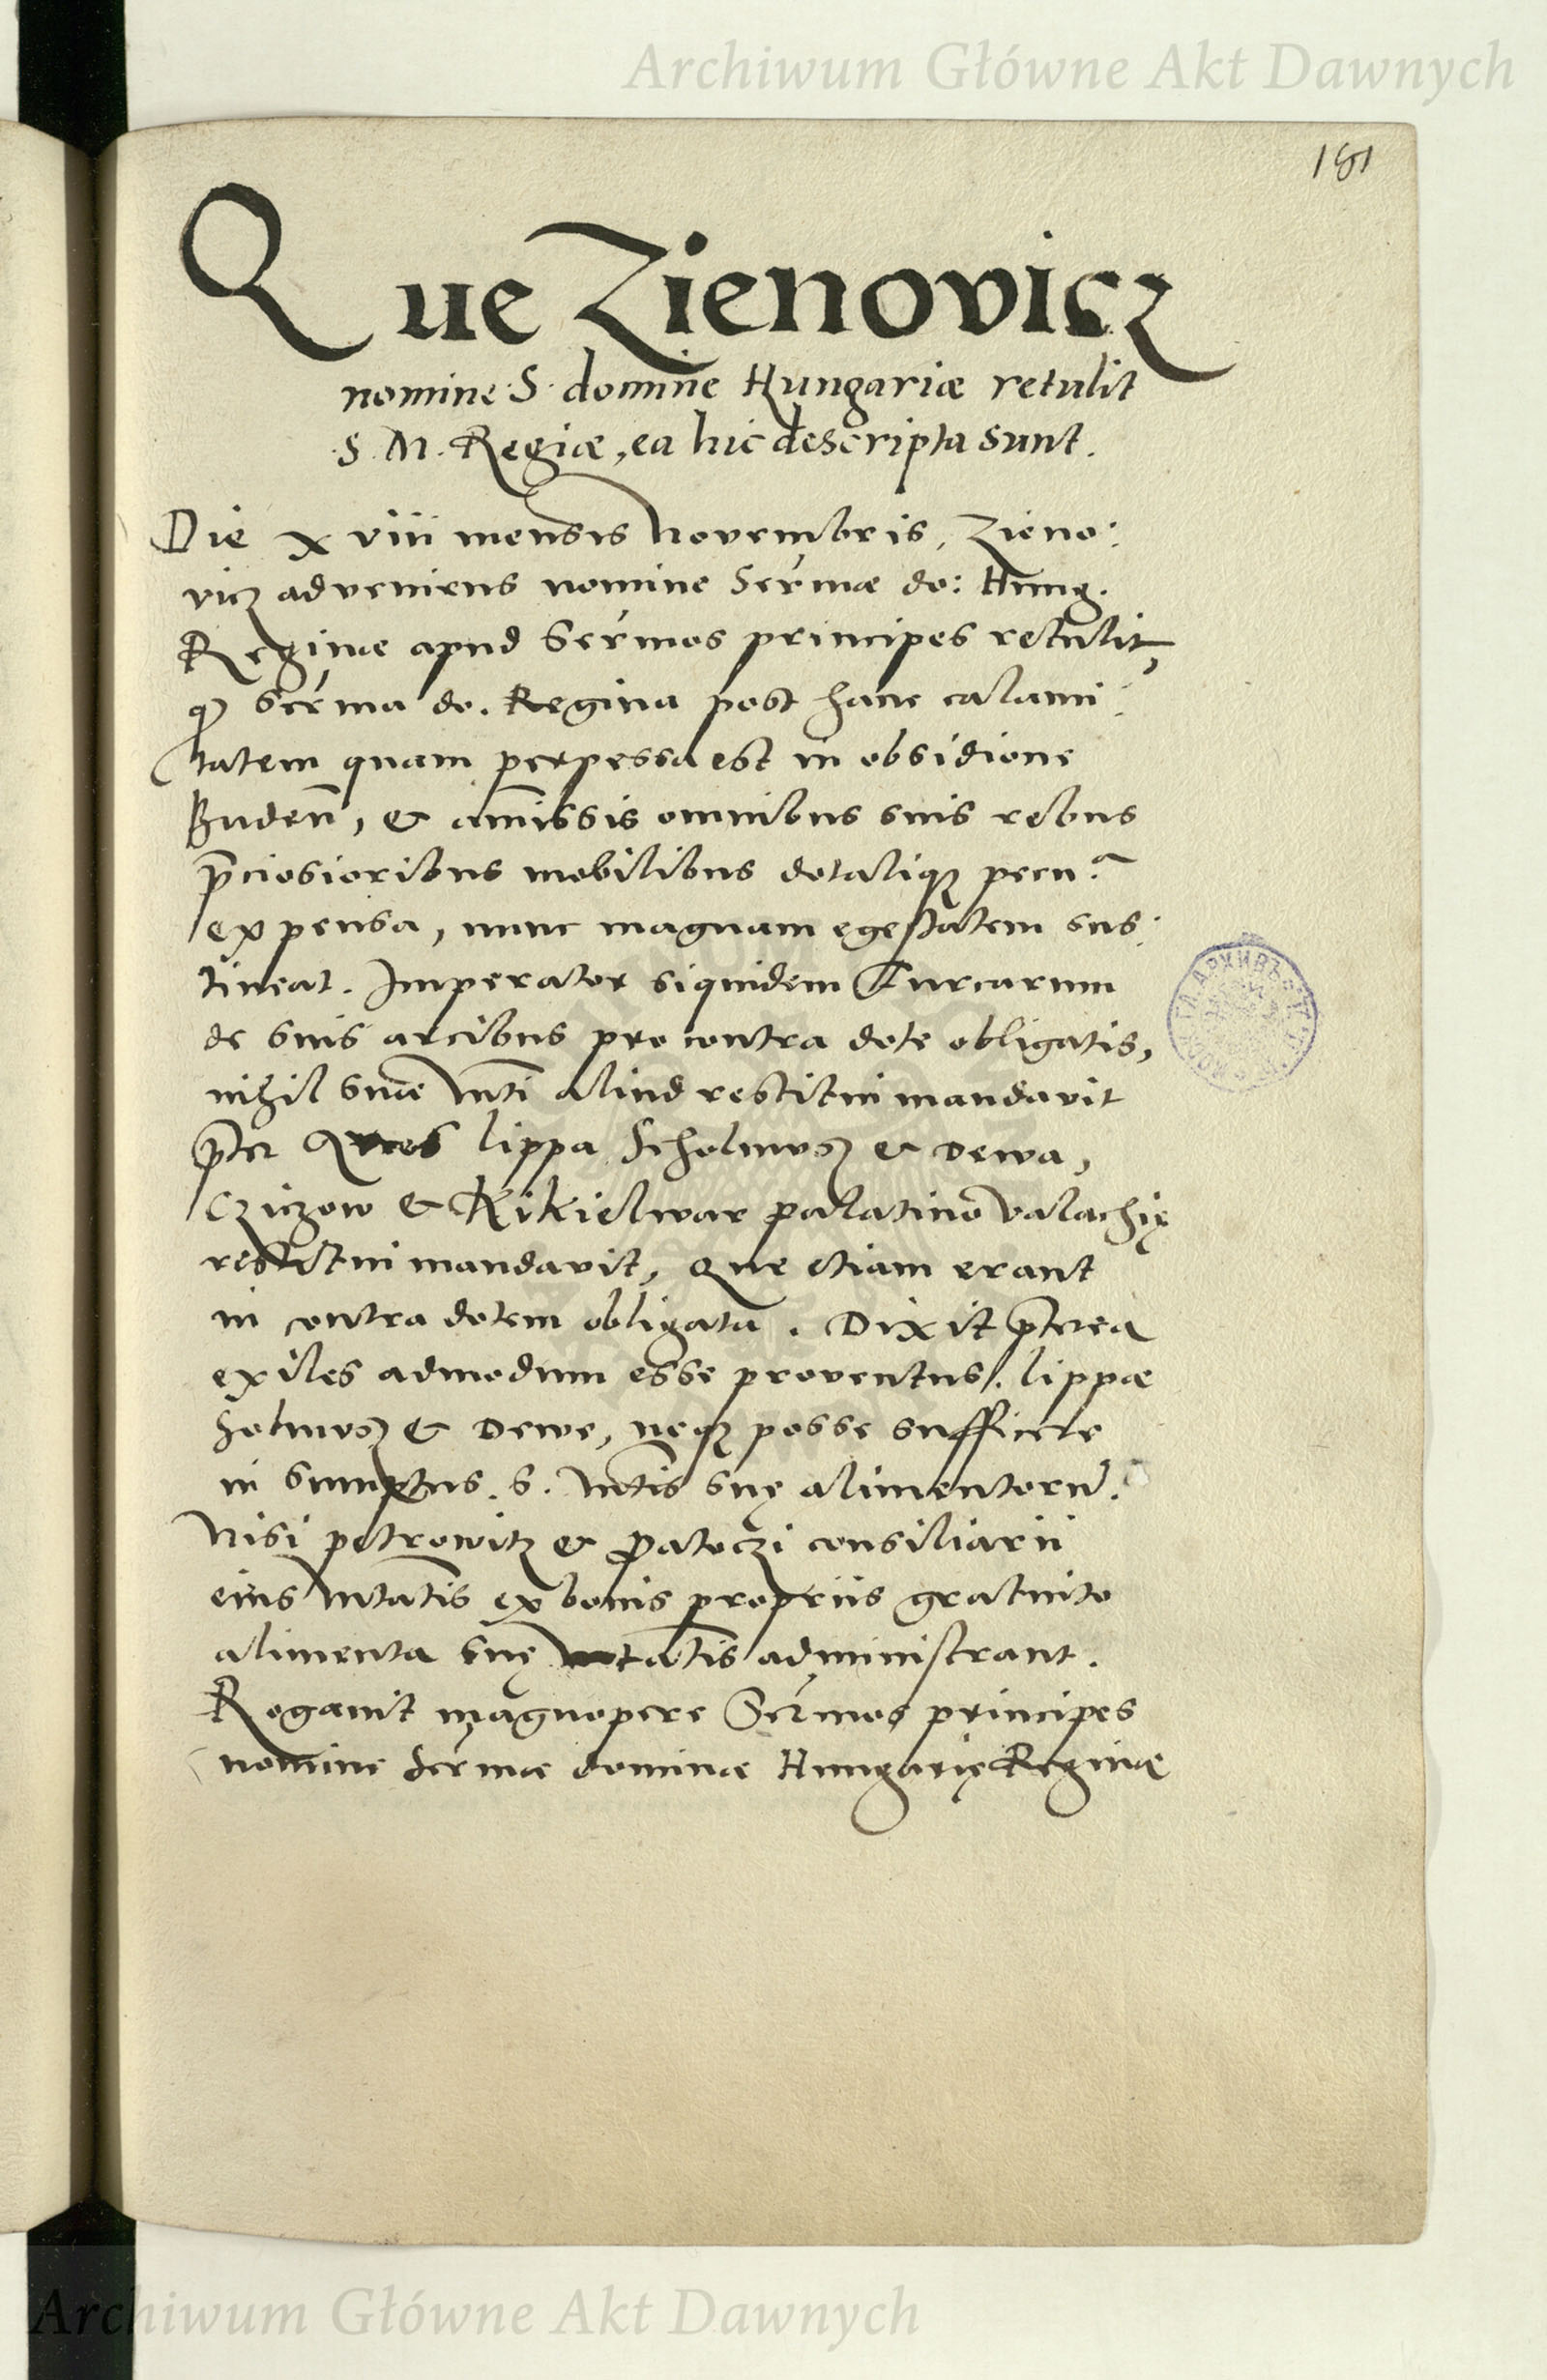 Archiwum Główne Akt Dawnych
181
Que Zienovicz
nomine S. domine Hungariæ retulit
S. M. Regiæ, ea hic descripta sunt.
Die xviii mensis Novembris, Zieno:
vicz adveniens nomine Sermæ do: Hung.
Reginæ apud Sermos principes retulit,
q Serma do. Regina post hanc calami:
tatem quam perpessa est in obsidione
Buden, & amissis omnibus suis rebus
pciosioribus mobilibus dotaliqz pecu.a
expensa, nunc magnam egestatem sus:
tineat. Imperator siquidem Turcarum
de suis arcibus pro contra dote obligatis,
nihil suæ Mti aliud restitui mandavit
pter lippa Scholmos & Dewa,
Cziczow & Kikielwar palatino Valachię
restitui mandavit, que etiam erant
in contra dotem obligata. Dixit pterea
exiles admodum esse proventus. lippæ
Solmos & Dewe, neqz posse sufficere
in sumptus. S. Mtis suę alimentoru.
Nisi petrowitz & Patoczi consiliarii
eius Mtatis ex bonis propriis gratuito
alimenta suę Mtatis administrant.
Rogavit magnopere Sermos principes
nomine Sermæ dominæ Hungarię Reginæ
Archiwum Główne Akt Dawnych